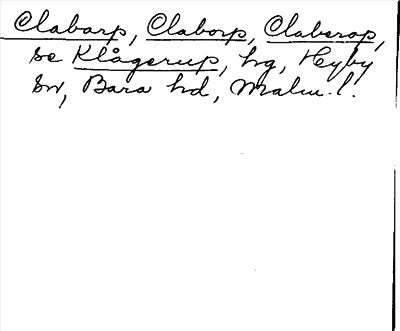 Clabarp, Claborp, Claberop,
se Klågerup, hg, Hyby
sn, Bara hd, Malm. l.